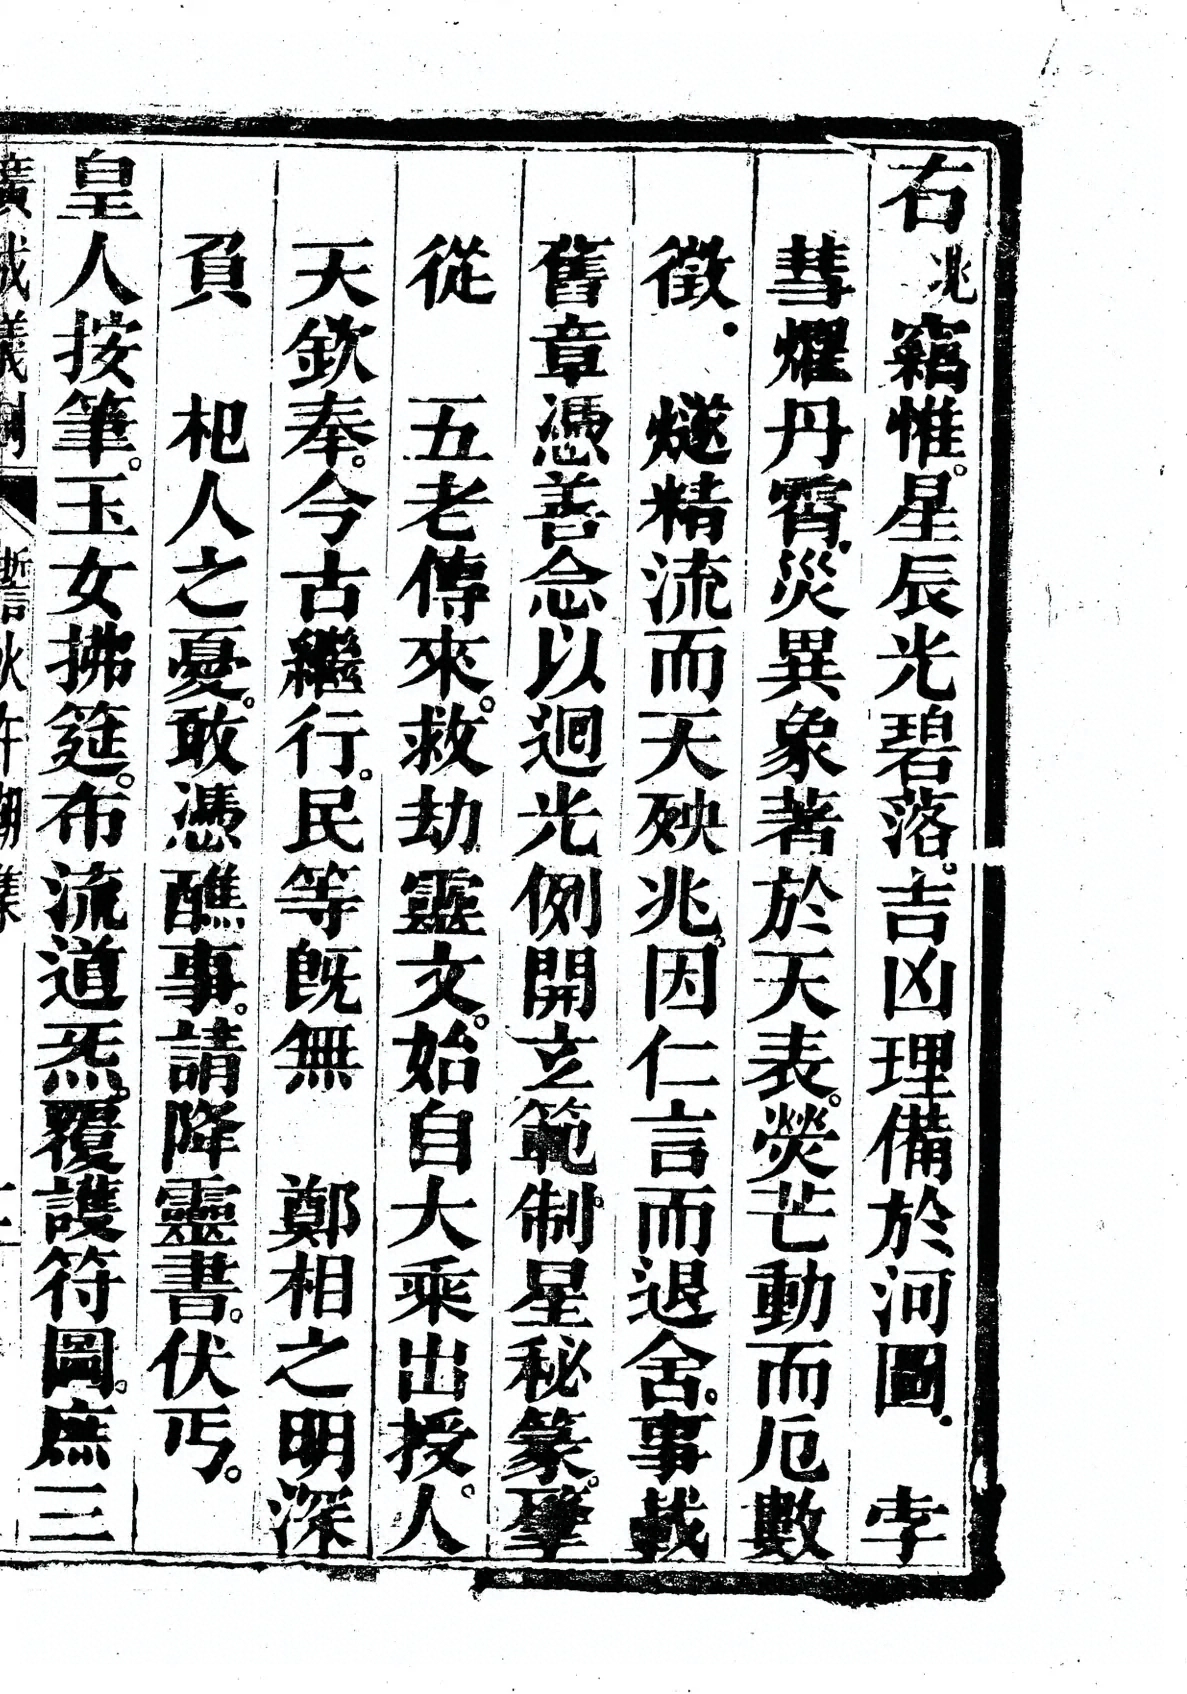 右兆竊惟。星辰光碧落。吉凶理備於河圖。　孛
彗燿丹霄。災異象著於天表。熒芒動而厄數
徵。　燧精流而天殃兆。因仁言而退舍。事載
舊章憑善念以迴光例開立範制。星秘篆。肇
從　五老傳來。救劫靈文。始自大乘出授。人
天欽奉。今古繼行。民等旣無　鄭相之明深
負　杞人之憂。敢憑醮事。請降靈書。伏丐。
皇人按筆。玉女拂筵。布流道炁。覆護符圖。庶三
廣成儀制